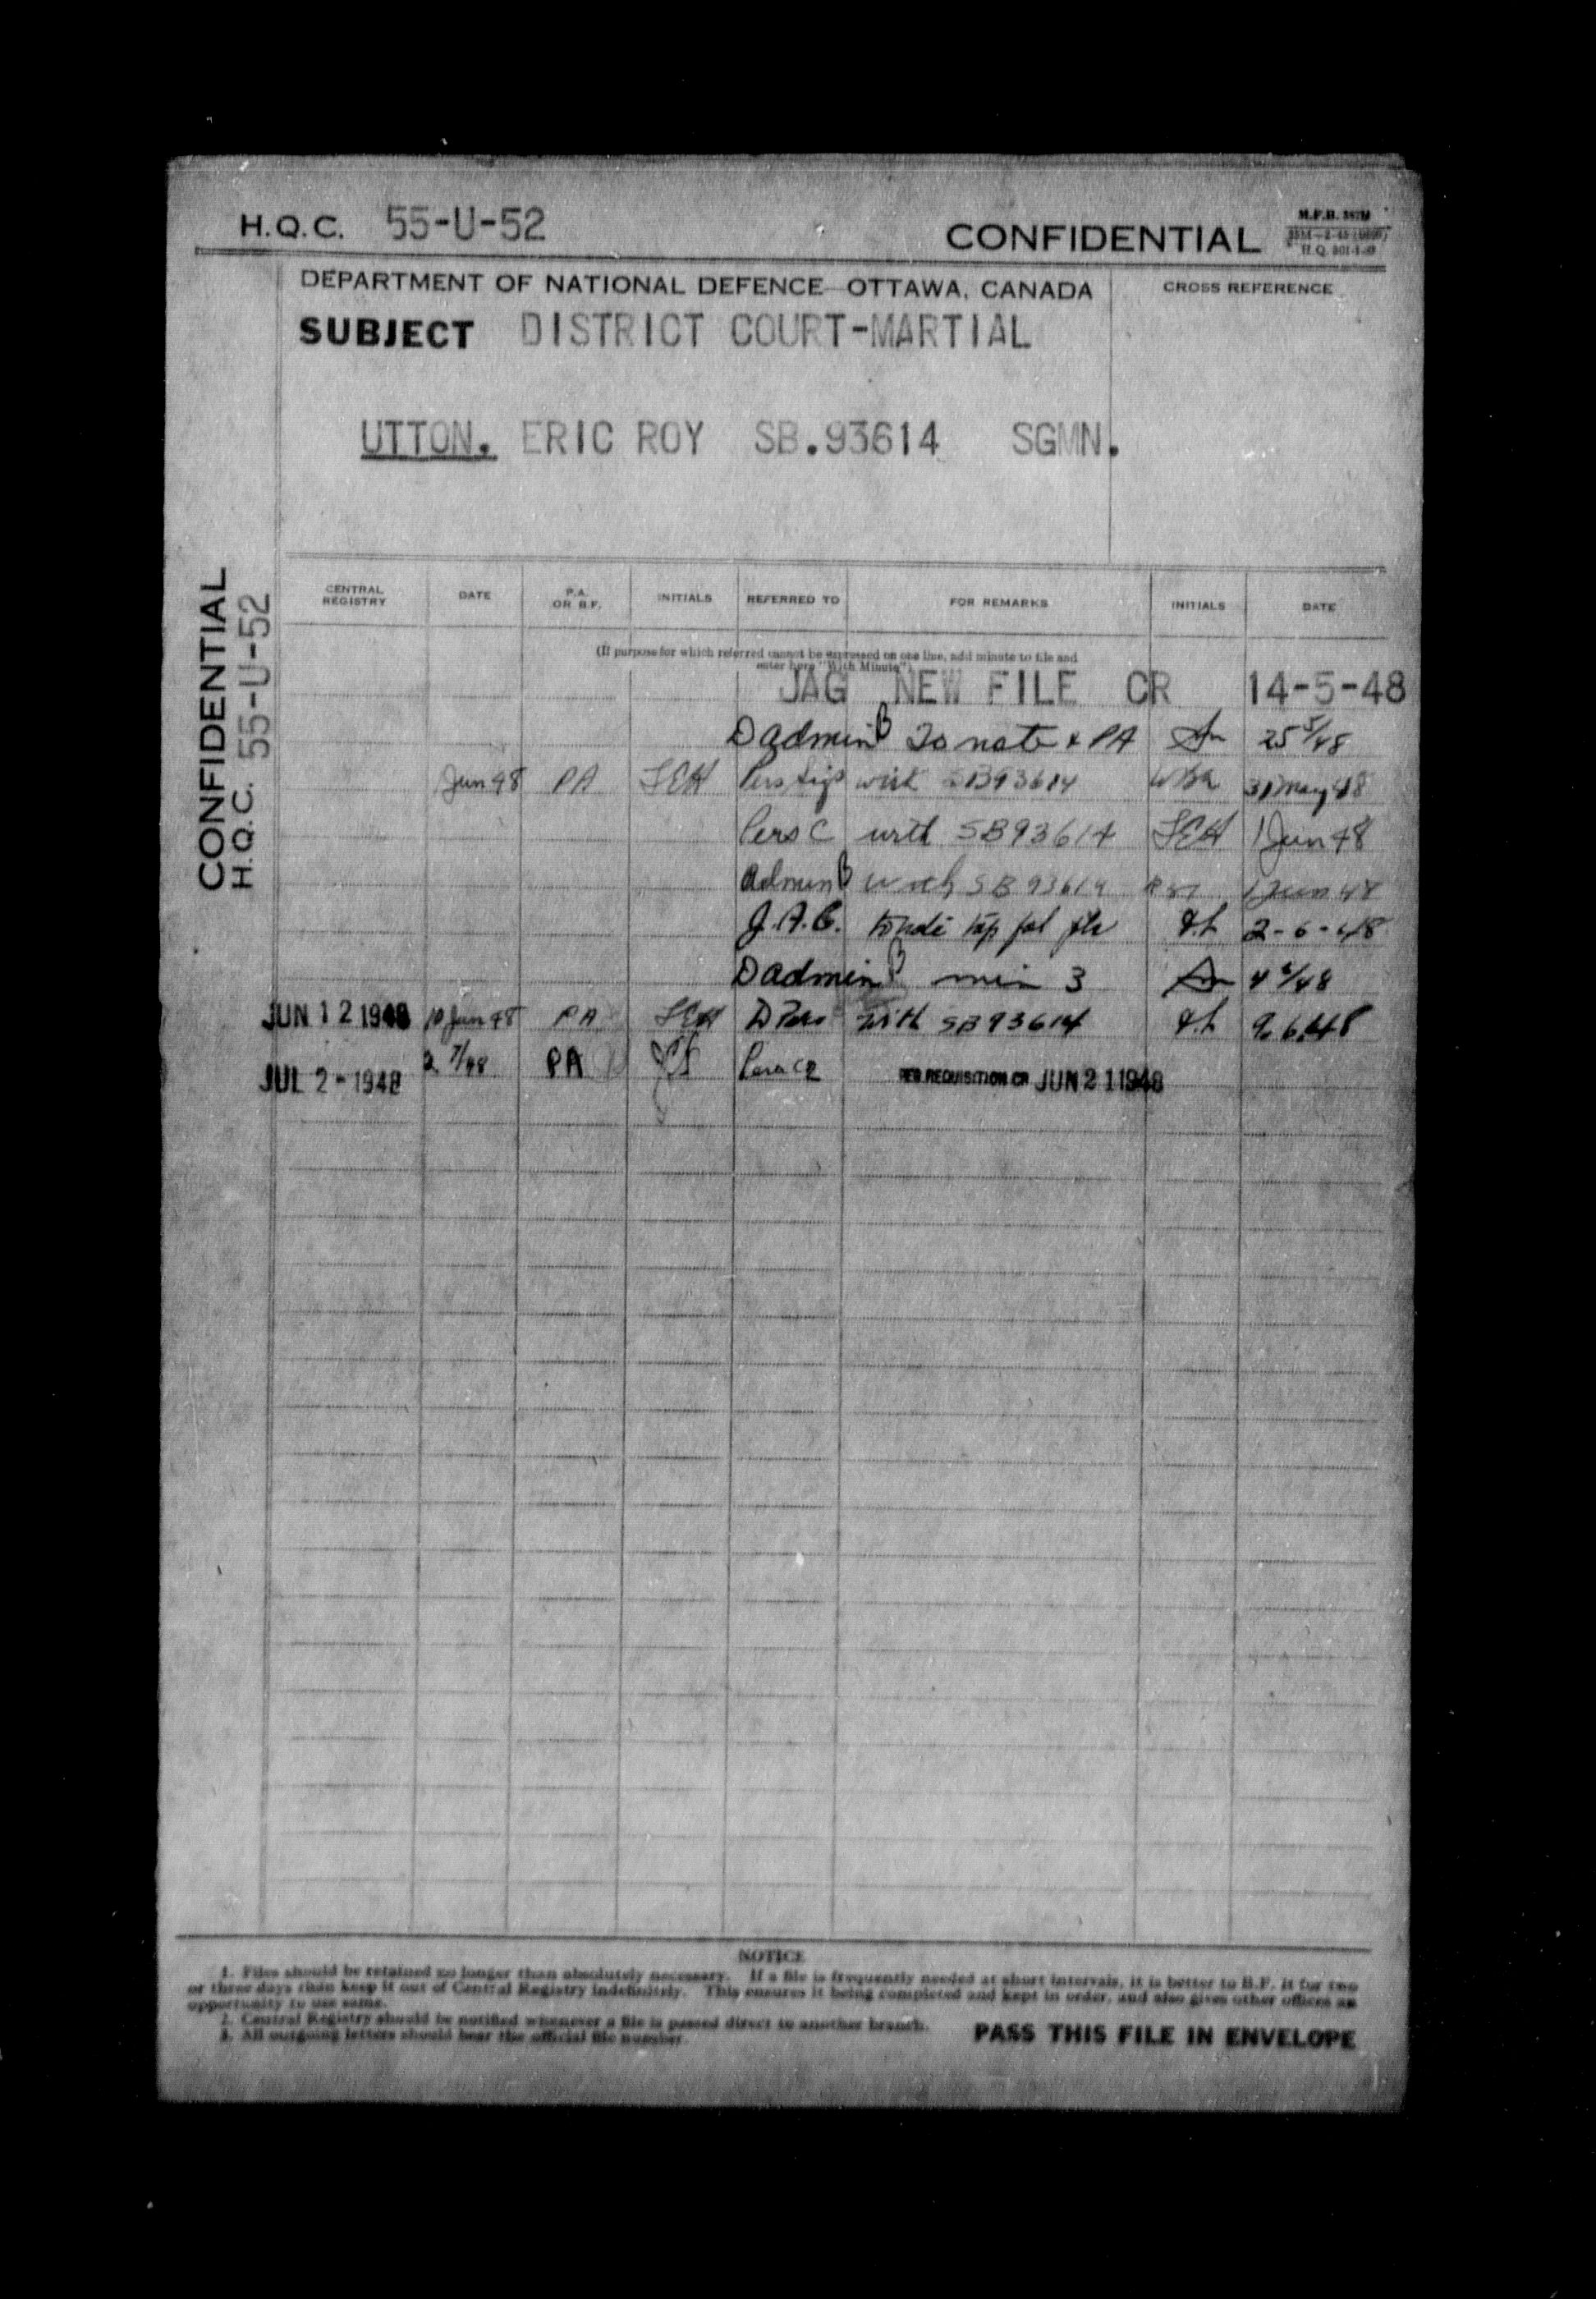 H.Q.C. 55-U-52
CONFIDENTIAL
DEPARTMENT OF NATIONAL DEFENCE—OTTAWA, CANADA
CROSS REFERENCE
SUBJECT DISTRICT COURT-MARTIAL
UTTON. ERIC ROY SB.93614 SGMN.
CONFIDENTIAL
H.Q.C. 55-U-52
CENTRAL REGISTRY DATE P.A. OR B.F. INITIALS REFERRED TO FOR REMARKS INITIALS DATE
(If purpose for which referred cannot be expressed on one line, add minute to file and
enter here "With Minute")
JAG NEW FILE CR 14-5-48
D admin B To note & PA 25 5/48
Jun 48 PA with SB93614 31 May 48
Pers C with SB93614 1 Jun 48
Admin B with SB93614 1 Jun 48
J.A.G. 2-6-48
D admin B min 3 4 6/48
JUN 12 1948 10 Jun 48 PA D Pers with SB93614 9.6.48
JUL 2 - 1948 2 7/48 PA Pers C2 PER REQUISITION CR JUN 21 1948
NOTICE
1. Files should be retained no longer than absolutely necessary. If a file is frequently needed at short intervals, it is better to B.F. it for two
or three days than keep it out of Central Registry indefinitely. This ensures it being completed and kept in order, and also gives other offices an
opportunity to use same.
2. Central Registry should be notified whenever a file is passed direct to another branch.
3. All outgoing letters should bear the official file number.
PASS THIS FILE IN ENVELOPE